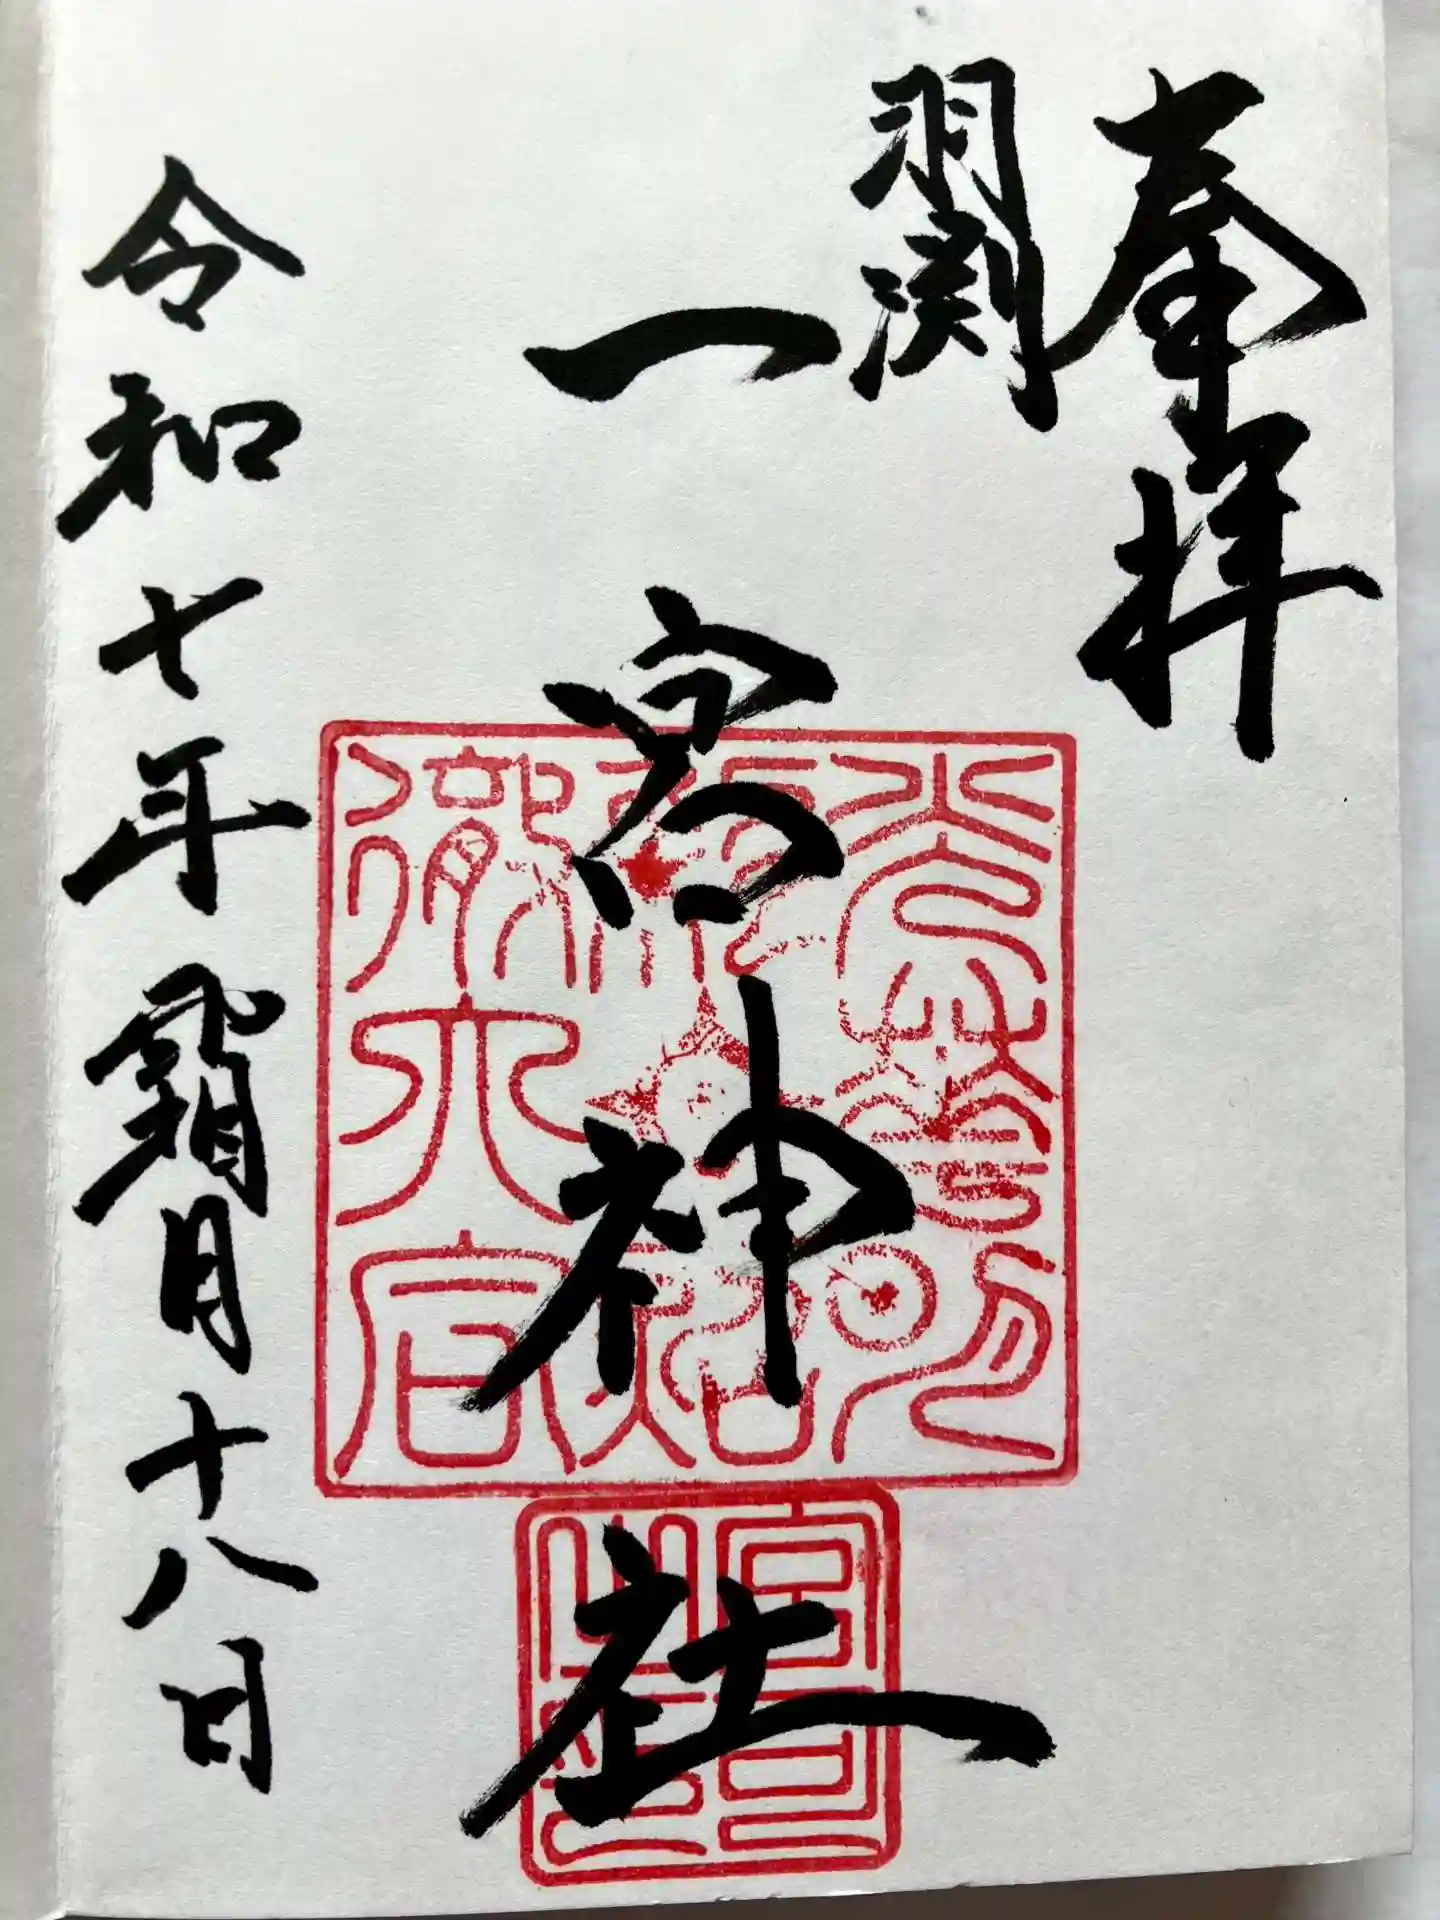 奉拝
羽渕
一宮神社
令和七年霜月十八日
宮司
之印